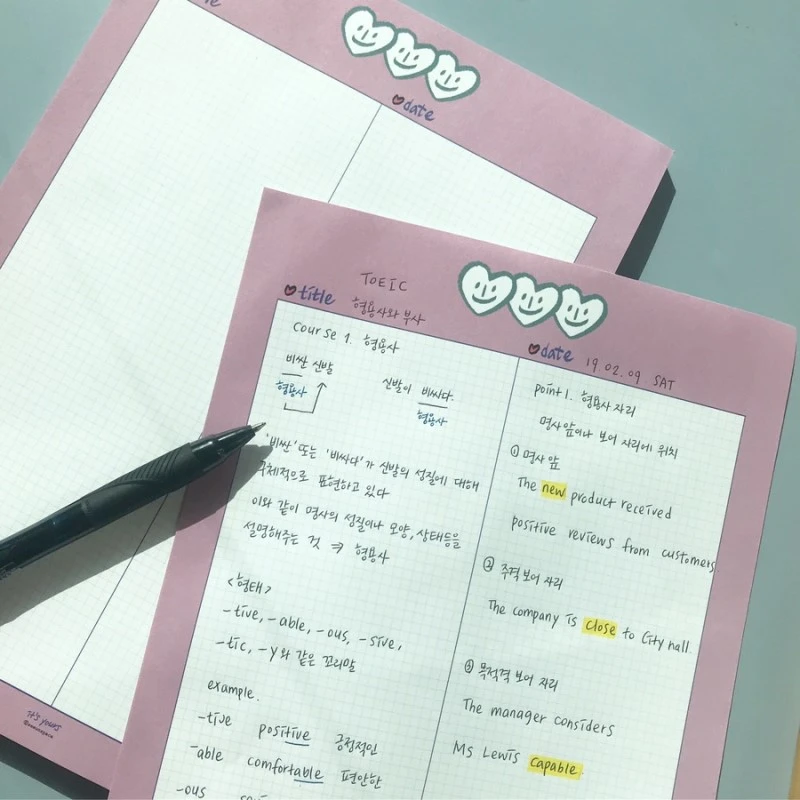 date
it's yours
TOEIC
title 형용사와 부사
course 1. 형용사
비싼 신발
형용사
신발이 비싸다.
형용사
'비싼' 또는 '비싸다'가 신발의 성질에 대해
구체적으로 표현하고 있다
이와 같이 명사의 성질이나 모양, 상태등을
설명해주는 것 ⇒ 형용사
<형태>
-tive, -able, -ous, -sive,
-tic, -y와 같은 꼬리말
example.
-tive positive 긍정적인
-able comfortable 편안한
-ous
date 19.02.09 SAT
point 1. 형용사 자리
명사 앞이나 보어 자리에 위치
① 명사 앞
The new product received
positive reviews from customers
② 주격 보어 자리
The company is close to City hall
③ 목적격 보어 자리
The manager considers
Ms Lewis capable.